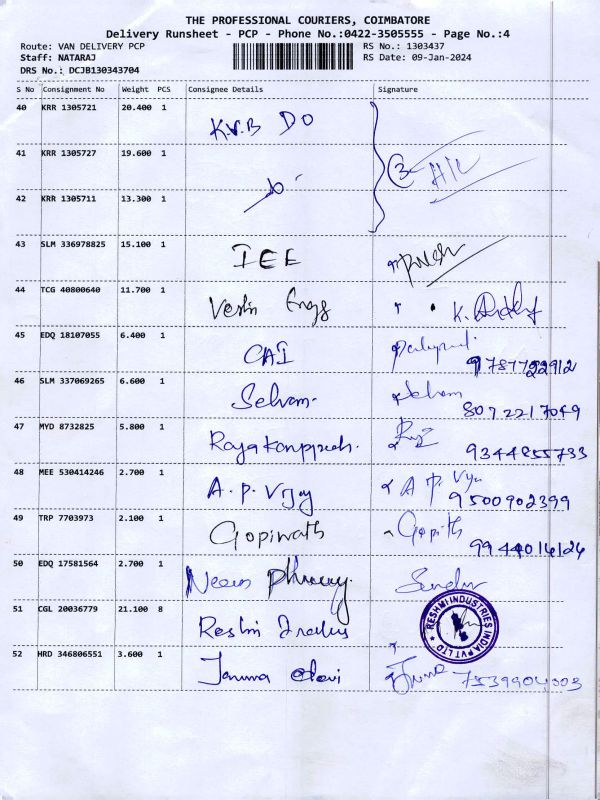 THE PROFESSIONAL COURIERS, COIMBATORE
Delivery Runsheet - PCP - Phone No.:0422-3505555 - Page No.:4
Route: VAN DELIVERY PCP
Staff: NATARAJ
DRS No.: DCJB130343704
RS No.: 1303437
RS Date: 09-Jan-2024
S No Consignment No Weight PCS Consignee Details Signature
40 KRR 1305721 20.400 1 K.V.B DO
41 KRR 1305727 19.600 1
42 KRR 1305711 13.300 1
43 SLM 336978825 15.100 1 IEE
44 TCG 40800640 11.700 1 K.
45 EDQ 18107055 6.400 1 CAI 9787722912
46 SLM 337069265 6.600 1 Selvam. Selvam 8072217049
47 MYD 8732825 5.800 1 9344855733
48 MEE 530414246 2.700 1 A. P. Vijay A P. 9500902399
49 TRP 7703973 2.100 1 Gopinath 9944016126
50 EDQ 17581564 2.700 1
51 CGL 20036779 21.100 8 RESHMI INDUSTRIES INDIA PVT LTD
52 HRD 346806551 3.600 1 7539904003